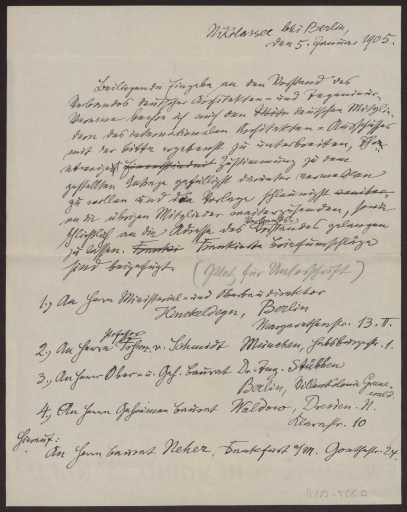 Nikolassee bei Berlin,
den 5. Januar 1905.
Beiliegende Eingabe an den Vorstand des
Verbandes deutscher Architekten- und Ingenieur-
Vereine beehre ich mich den deutschen Mitglie-
dern des internationalen Architekten-Ausschusses
mit der Bitte ergebenst zu unterbreiten, Ihre
Zustimmung zu dem
gestellten Antrage gefälligst darunter vermerken
zu wollen und die Vorlage schleunigst
an die übrigen Mitglieder weiterzusenden,
schließlich an die Adresse des Vorstandes gelangen
zu lassen. Frankierte Briefumschläge
sind beigefügt. (Platz für Unterschrift)
1.) An Herrn Ministerial- und Oberbaudirektor
Hinckeldeyn, Berlin
Margarethenstr. 13. II.
2.) An Herrn Professor v. Schmidt München, 1.
3.) An Herrn Ober- u. Geh. Baurat Dr. Ing. Stübben
Berlin,
4.) An Herrn Geheimen Baurat Waldow, Dresden-N.
10
Hierauf:
An Herrn Baurat Neher, Frankfurt a/M. Goethestr. 24.